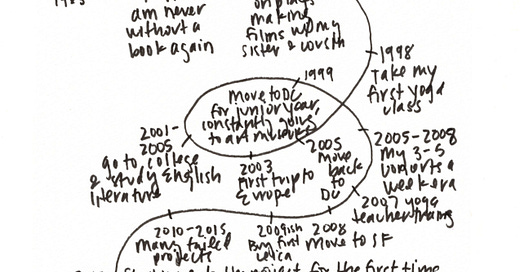 am never
without a
book again
making
films w/my
sister &
1998
Take my
first yoga
class
1999
move to DC
for junior year,
constantly going
to art museums
2001-
2005
go to college
& study English
literature
2003
first trip to
Europe
2005
move
back
to
DC
2005-2008
my 3-5
workouts a
week era
2007 yoga
teacher training
2008
Move to SF
2009ish
Buy first
Leica
2010-2015
Many failed
projects
for the first time